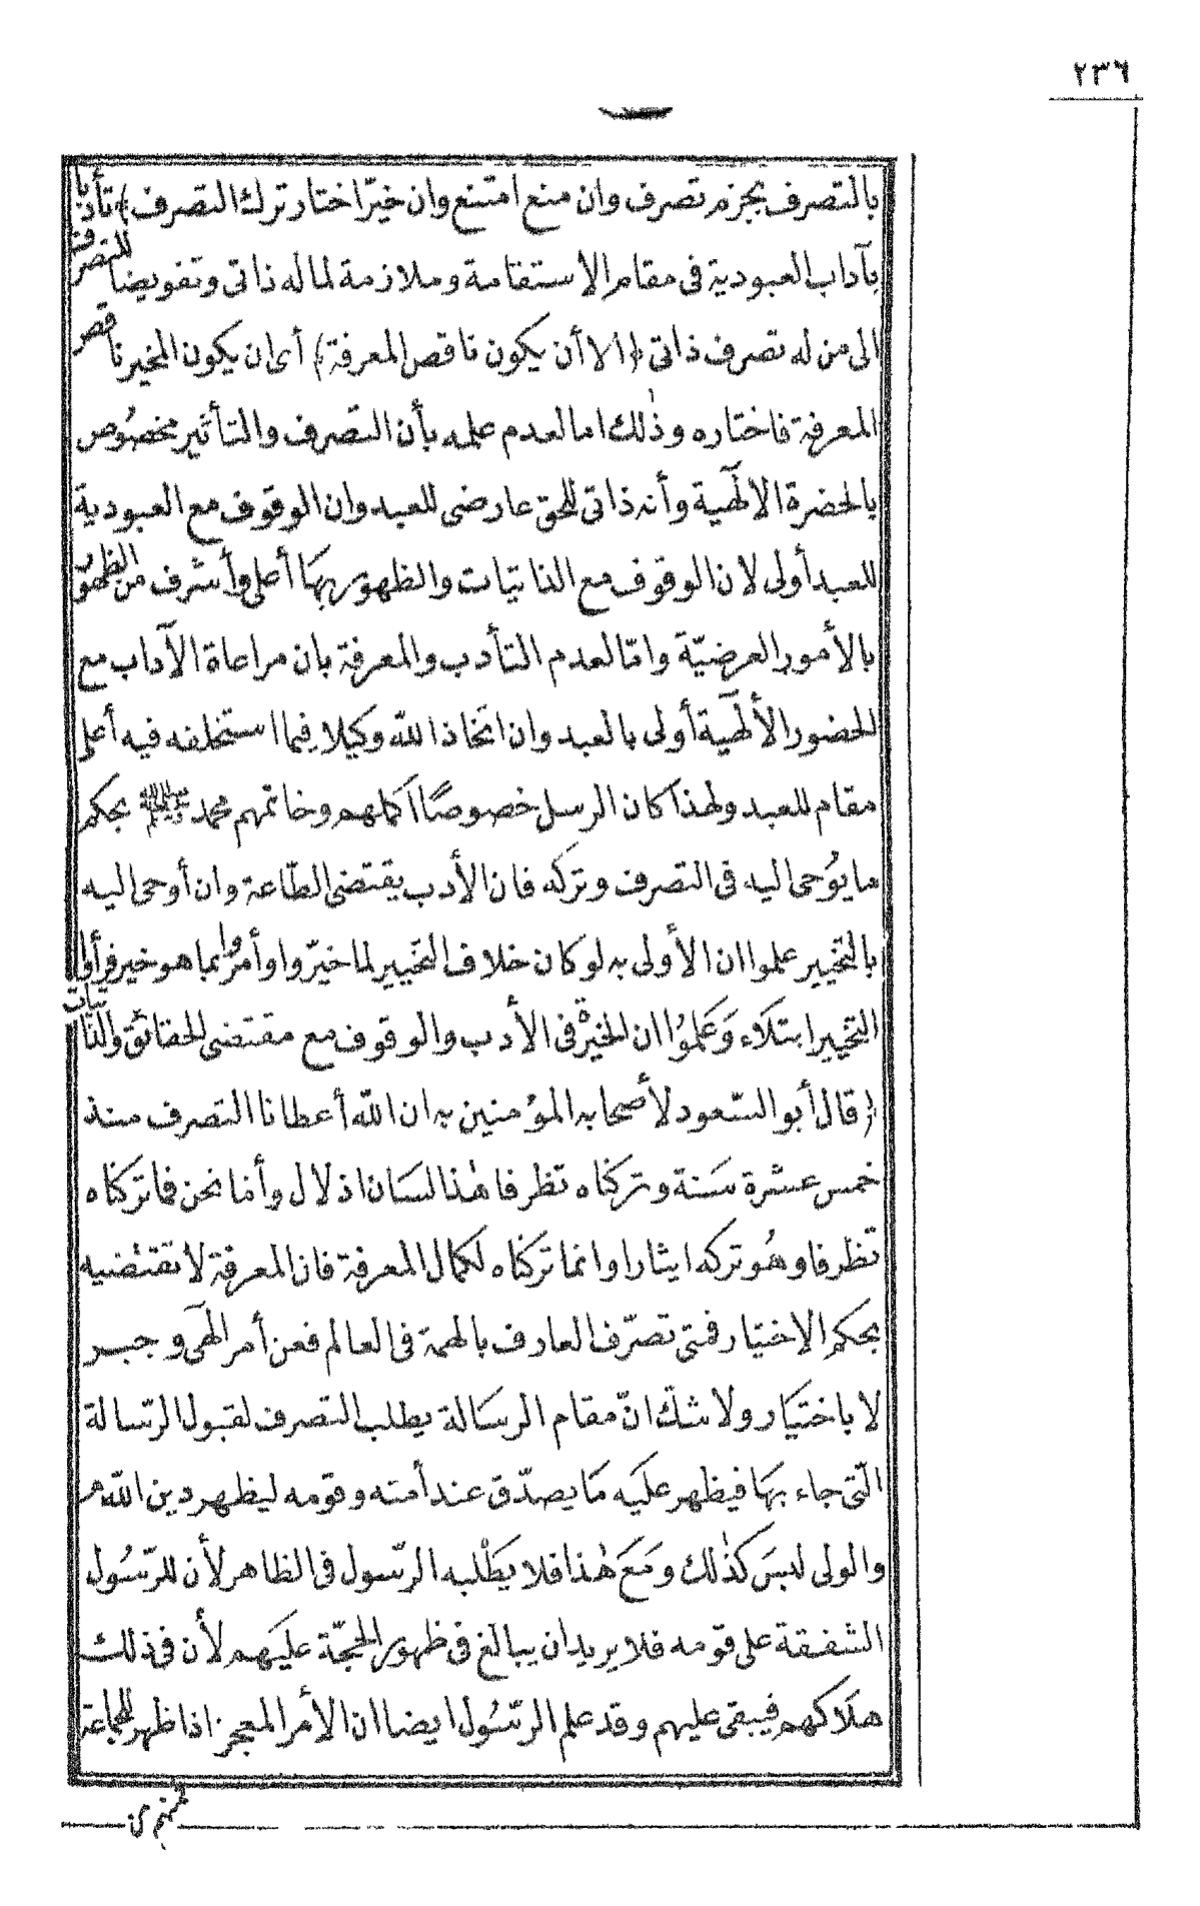 ٢٣٦
بالتصرف بجزم تصرف وان منع امتنع وان خيّر اختار ترك التصرف﴾ تأدبا
بآداب العبودية فى مقام الاستقامة وملازمة لما له ذاتى وتفويضا للتصرف
الى من له تصرف ذاتى ﴿الا أن يكون ناقص المعرفة﴾ أى ان يكون المخير ناقص
المعرفة فاختاره وذٰلك اما لعدم علمه بأن التصرف والتأثير مخصُوص
بالحضرة الالٓهية وأنه ذاتى للحق عارضى للعبد وان الوقوف مع العبودية
للعبد أولى لان الوقوف مع الذاتيات والظهور بهَا أعلى وأشرف من الظهور
بالأمور العرضيّة وامّا لعدم التأدب والمعرفة بان مراعاة الآداب مع
الحضور الألٓهية أولى بالعبد وان اتخاذ اللّه وكيلا فيما استخلفه فيه أعلى
مقام للعبد ولهذا كان الرسل خصوصًا اكملهم وخاتمهم محمد ﷺ بحكم
ما يوُحى اليه فى التصرف وتركه فان الأدب يقتضى الطّاعة وان أوحى اليه
بالتخيير علموا ان الأولى به لو كان خلاف التخيير لما خيّروا وأمروا بما هو خير فرأوا
التخيير ابتلَاء وَعَلموُا ان الخيرة فى الأدب والوقوف مع مقتضى الحقائق والذاتيات
﴿قال أبو السّعود لأصحابه المؤمنين به ان اللّه أعطانا التصرف منذ
خمس عشرة سَنة وتركناه تظرفا هٰذا لسَان اذلال وأما نحن فما تركناه
تظرفا وهُو تركه ايثارا وانما تركناه لكمال المعرفة فان المعرفة لا تقتضيه
بحكم الاختيار فمتى تصرّف العارف بالهمة فى العالم فعن أمر الهٓى وجبر
لا باختيَار ولا شكّ انّ مقام الرسَالة يطلب التصرف لقبول الرّسالة
الّتى جاء بهَا فيظهر علَيه مَا يصدّق عند أمته وقومه ليظهر دين اللّه
والولى ليسَ كذٰلك ومَعَ هٰذا فلا يَطْلبه الرّسول فى الظاهر لأن للرّسُول
الشفقة على قومه فلا يريد ان يبالغ فى ظهور الحجّة عليَهم لأن فى ذلك
هلَاكهم فيبقى عليهم وقد علم الرّسُول ايضا ان الأمر المعجز اذا ظهر للجماعة